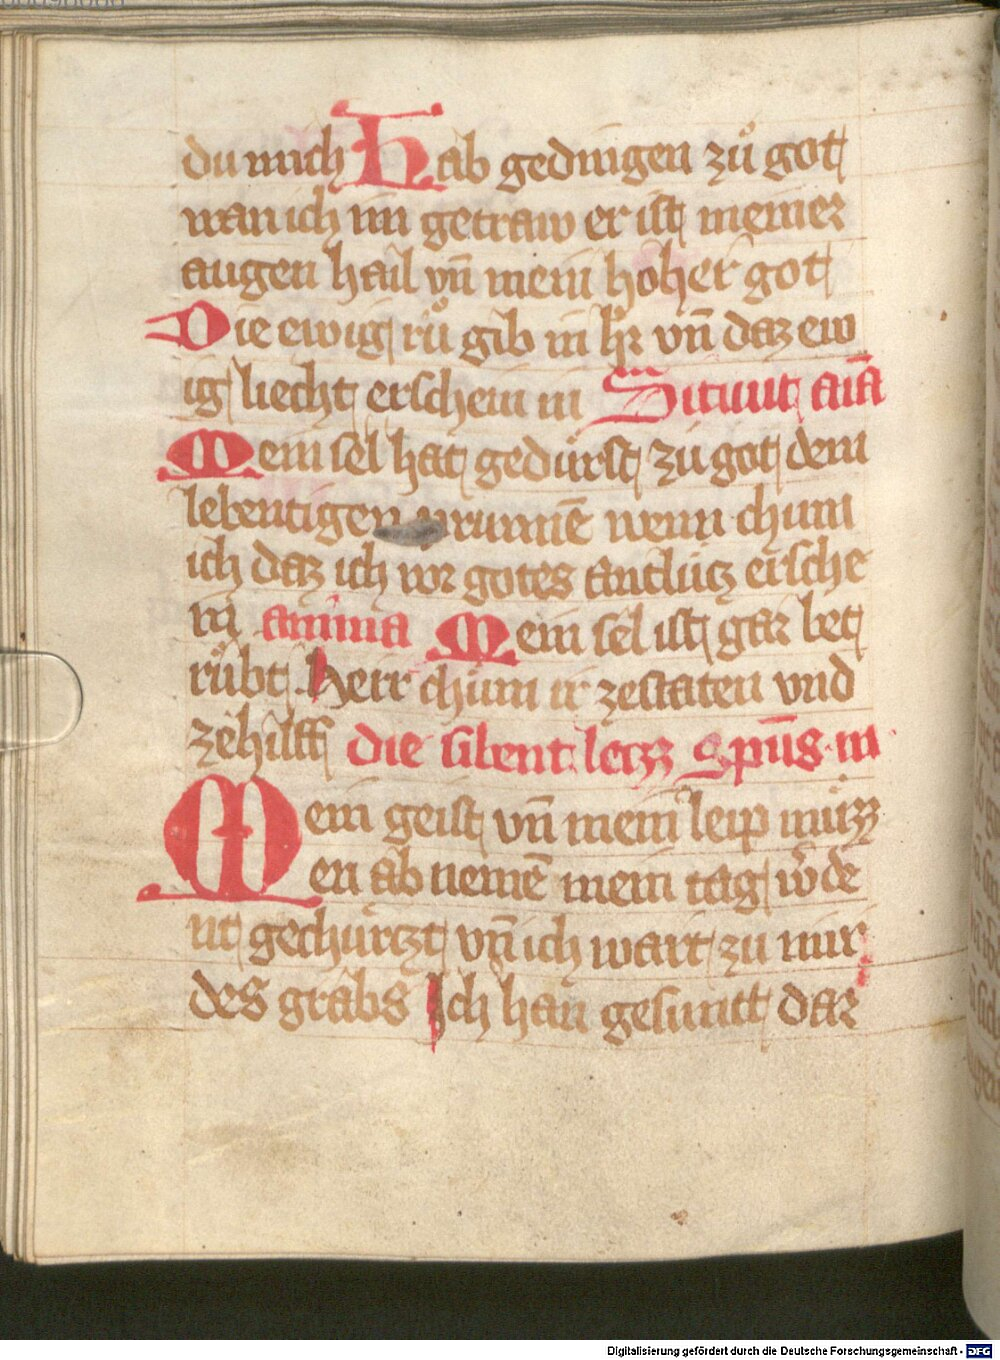 du mich Hab gedingen zů got
wan ich im getraw er ist meiner
augen hail vn̄ mein hoher got
Die ewig rů gib in hr̄ vn̄ daz ew
ig liecht erschein in Sitiuit aīa
Mein sel hat gedürst zů got dem
lebentigen prunnē wenn chum
ich daz ich vor gotes antlücz ersche
in anima Mein sel ist gar bet
rübt Herr chum ir zestaten vnd
zehilff die sibent leczz Sp̄us m
Mein geist vn̄ mein leip müzz
en ab nemē mein tag w̄de
nt gechürczt vn̄ ich wart zu mir
des grabs Ich han gesuntt dar
Digitalisierung gefördert durch die Deutsche Forschungsgemeinschaft - DFG